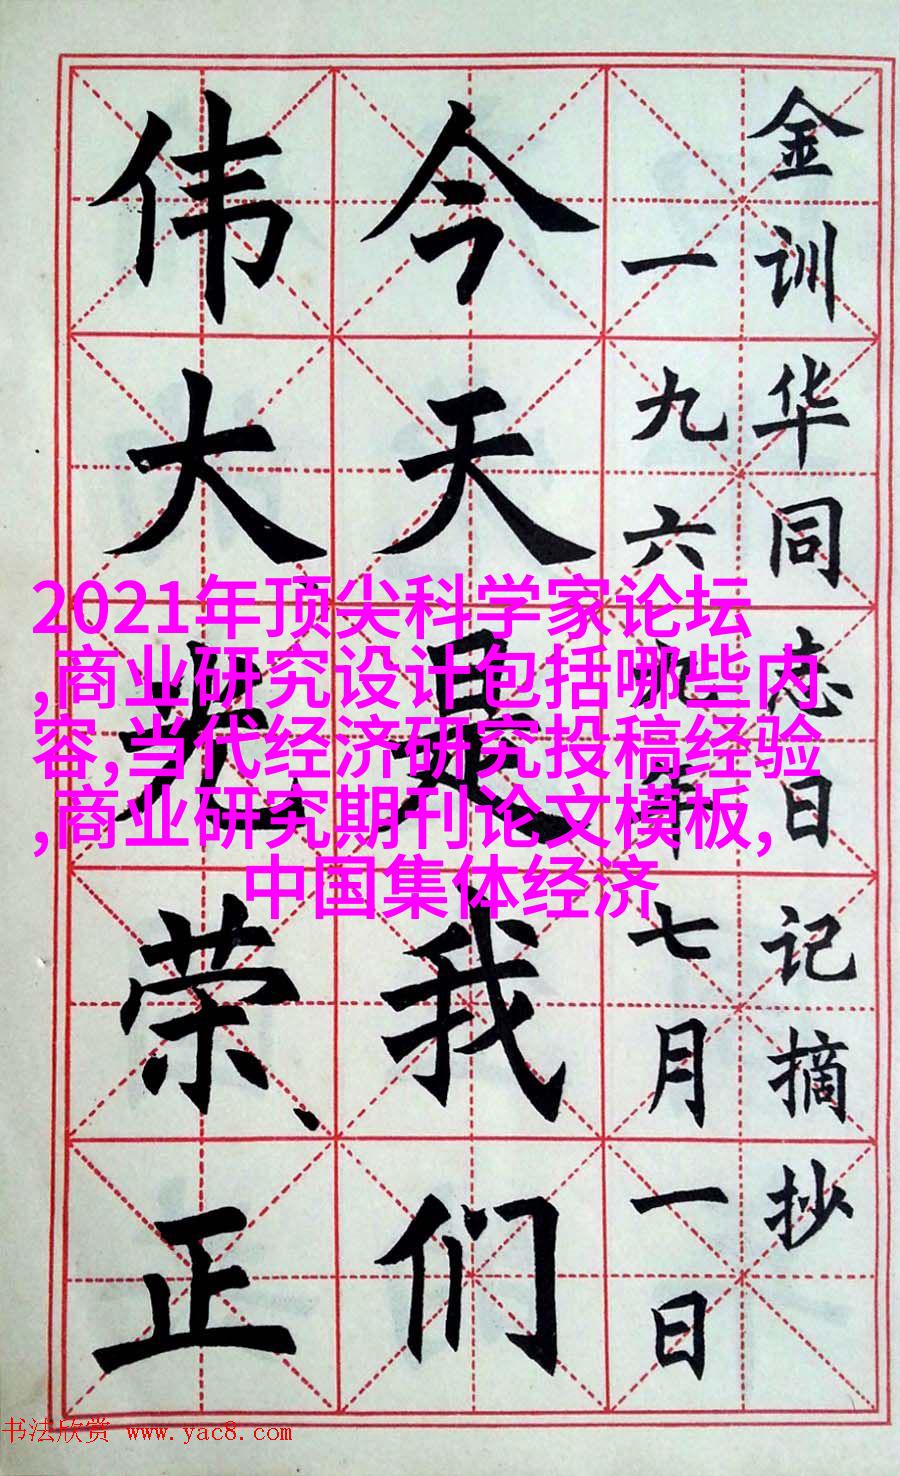 金训华同志日记摘抄
一九六九年七月一日
今天是我们
伟大光荣正
2021年顶尖科学家论坛
,商业研究设计包括哪些内
容,当代经济研究投稿经验
,商业研究期刊论文模板,
中国集体经济
书法欣赏 www.yac8.com